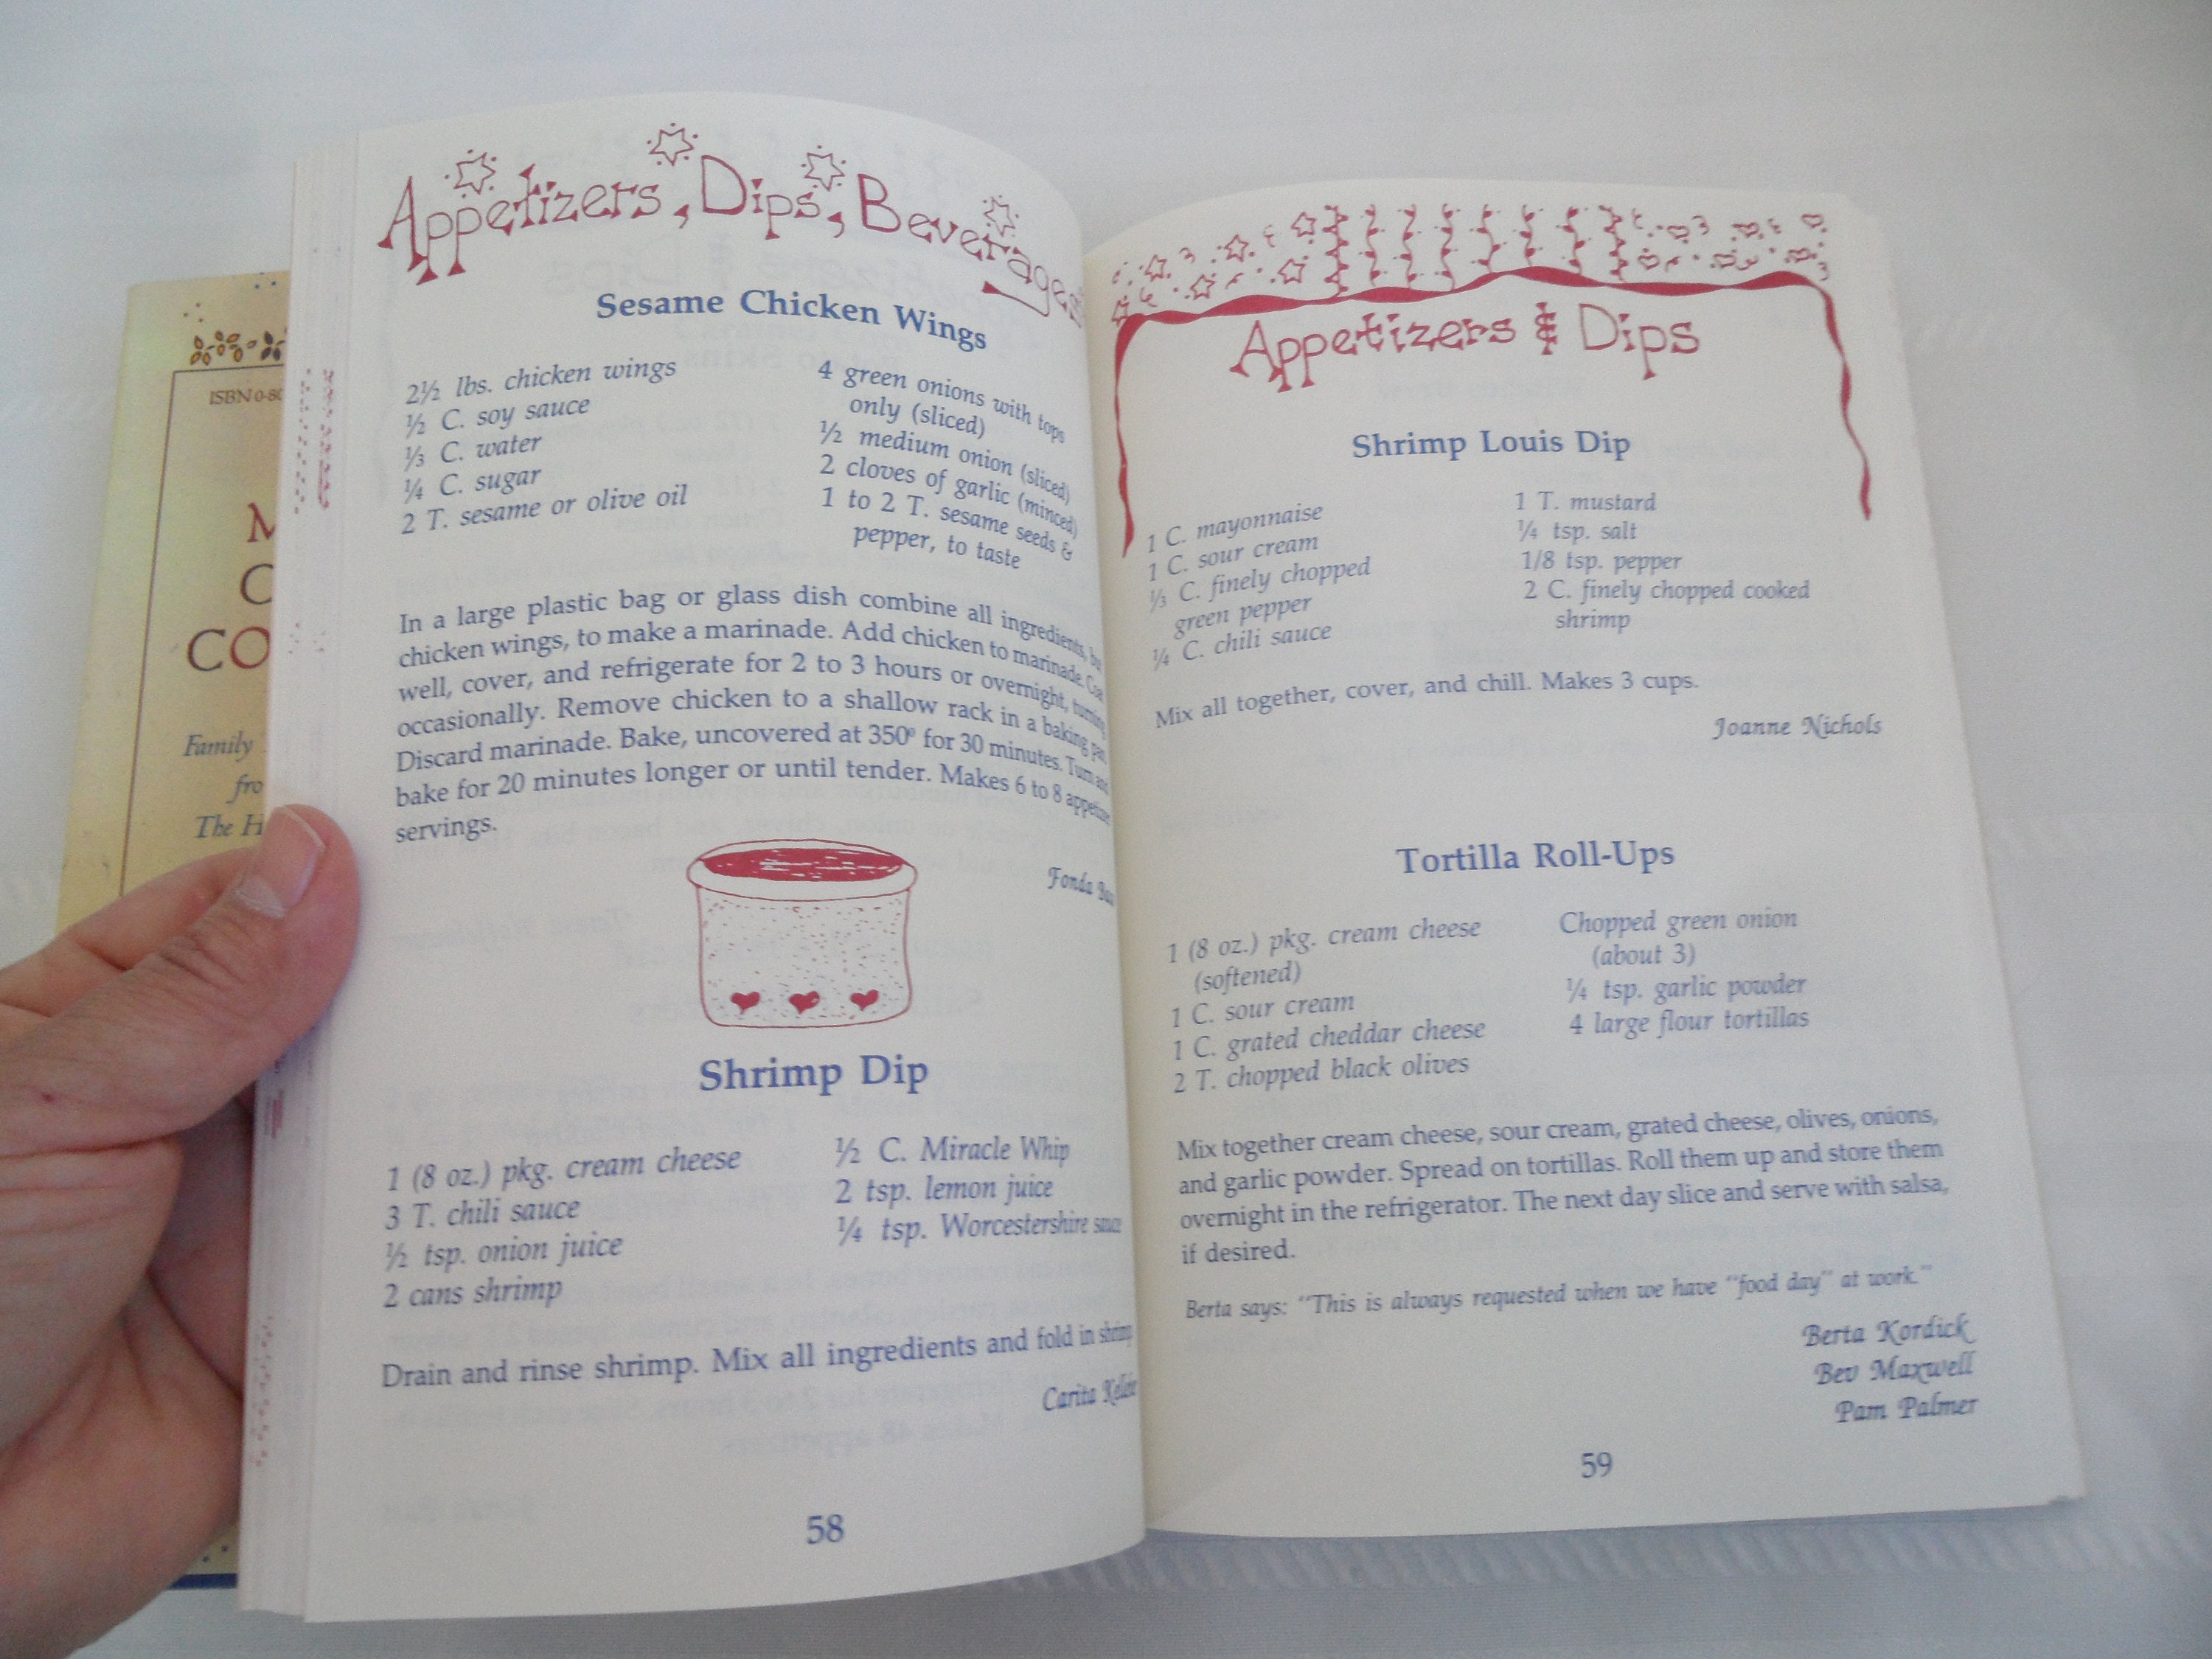 ISBN 0-80
M
C
CO
Family
fro
The H
Appetizers, Dips, Beverages
Sesame Chicken Wings
2½ lbs. chicken wings
½ C. soy sauce
⅓ C. water
¼ C. sugar
2 T. sesame or olive oil
4 green onions with tops
only (sliced)
½ medium onion (sliced)
2 cloves of garlic (minced)
1 to 2 T. sesame seeds &
pepper, to taste
In a large plastic bag or glass dish combine all ingredients,
chicken wings, to make a marinade. Add chicken to marinade.
well, cover, and refrigerate for 2 to 3 hours or overnight, turning
occasionally. Remove chicken to a shallow rack in a baking pan.
Discard marinade. Bake, uncovered at 350º for 30 minutes. Turn and
bake for 20 minutes longer or until tender. Makes 6 to 8 appetizer
servings.
Fonda
Shrimp Dip
1 (8 oz.) pkg. cream cheese
3 T. chili sauce
½ tsp. onion juice
2 cans shrimp
½ C. Miracle Whip
2 tsp. lemon juice
¼ tsp. Worcestershire sauce
Drain and rinse shrimp. Mix all ingredients and fold in shrimp
Carita
58
Appetizers & Dips
Shrimp Louis Dip
1 C. mayonnaise
1 C. sour cream
⅓ C. finely chopped
green pepper
¼ C. chili sauce
1 T. mustard
¼ tsp. salt
1/8 tsp. pepper
2 C. finely chopped cooked
shrimp
Mix all together, cover, and chill. Makes 3 cups.
Joanne Nichols
Tortilla Roll-Ups
1 (8 oz.) pkg. cream cheese
(softened)
1 C. sour cream
1 C. grated cheddar cheese
2 T. chopped black olives
Chopped green onion
(about 3)
¼ tsp. garlic powder
4 large flour tortillas
Mix together cream cheese, sour cream, grated cheese, olives, onions,
and garlic powder. Spread on tortillas. Roll them up and store them
overnight in the refrigerator. The next day slice and serve with salsa,
if desired.
Berta says: "This is always requested when we have "food day" at work."
Berta Kordick
Bev Maxwell
Pam Palmer
59